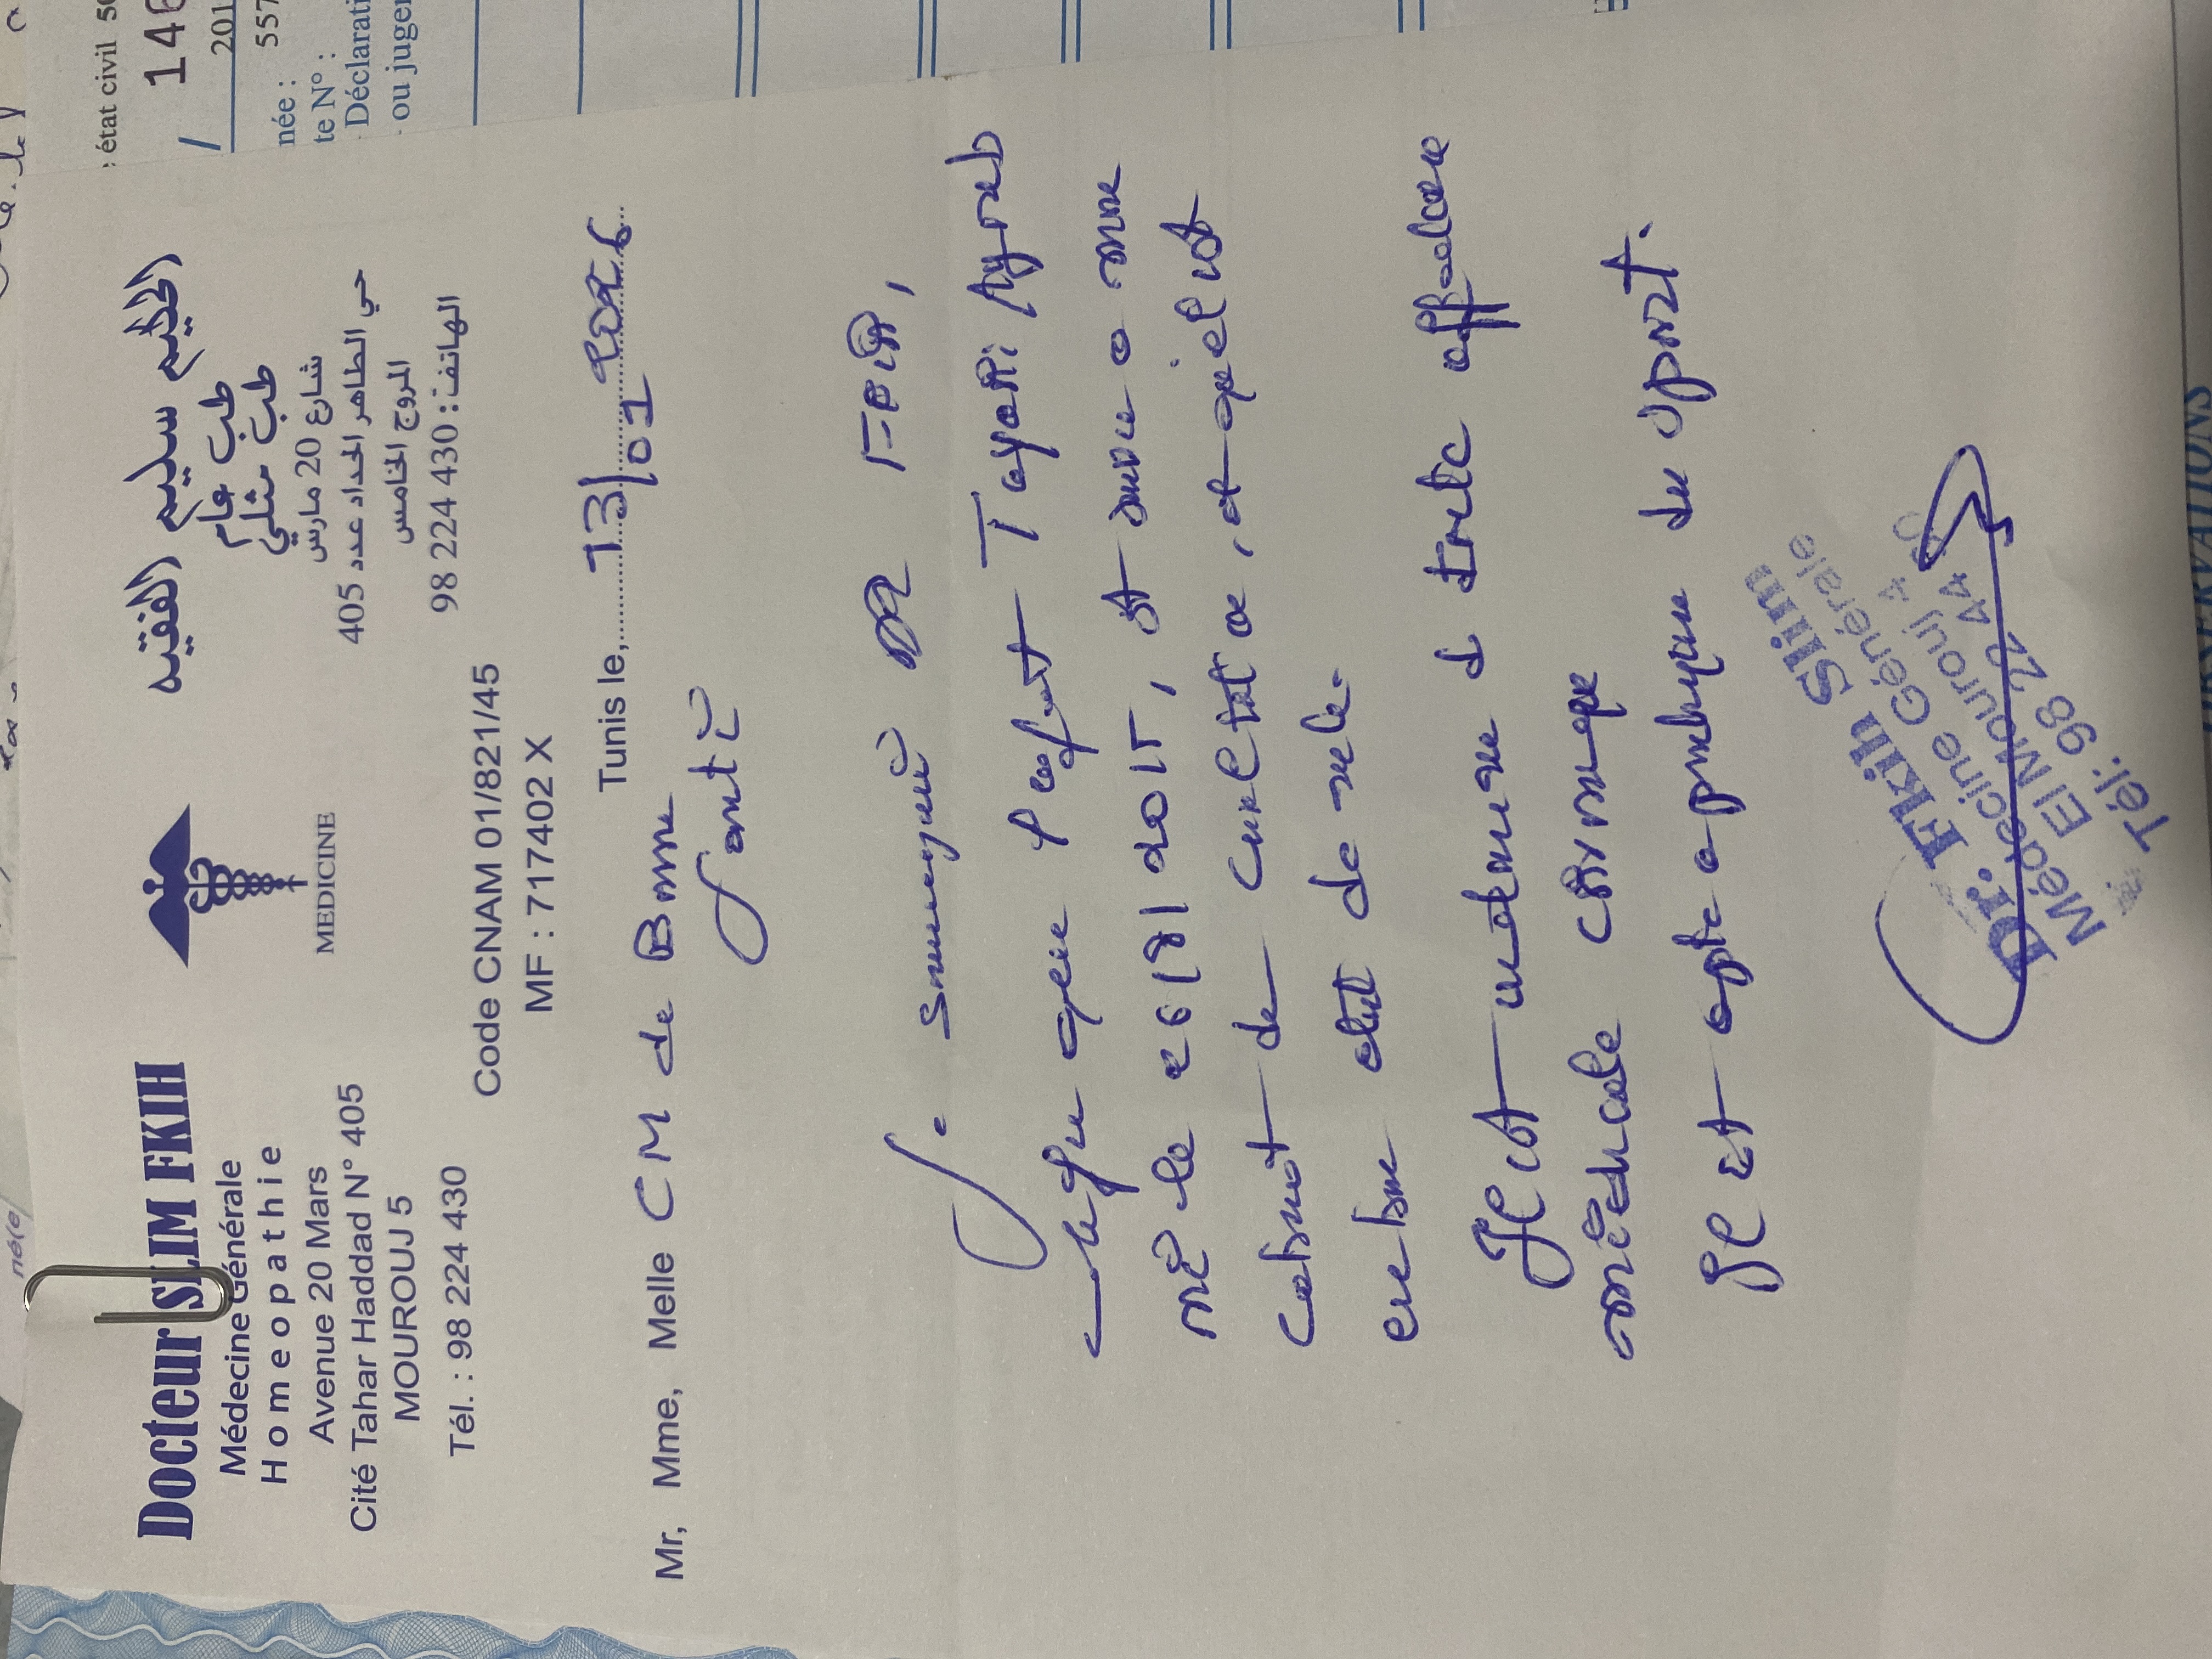 Docteur SLIM FKIH
Médecine Générale
Homeopathie
Avenue 20 Mars
Cité Tahar Haddad N° 405
MOUROUJ 5
Tél. : 98 224 430
MEDICINE
الحكيم سليم الفقيه
طب عام
طب مثلي
شارع 20 مارس
حي الطاهر الحداد عدد 405
المروج الخامس
الهاتف : 430 224 98
Code CNAM 01/821/45
MF : 717402 X
Tunis le, 13/01 2026
Mr, Mme, Melle CM de Bonne
Santé
Je soussigné Dr Fkih,
certifie que l'enfant Tayari Ayoub
né le 2015, est suivi a mon
cabinet de consultation, et qu'il est
en bon état de santé.
Il est indemne de toute affection
médicale chronique
Il est apte a pratiquer du sport.
Dr. Fkih Slim
Médecine Générale
El Mourouj 4
Tél: 98 22 44
état civil
146
/ 201
née : 557
te N° :
Déclarati
ou juger